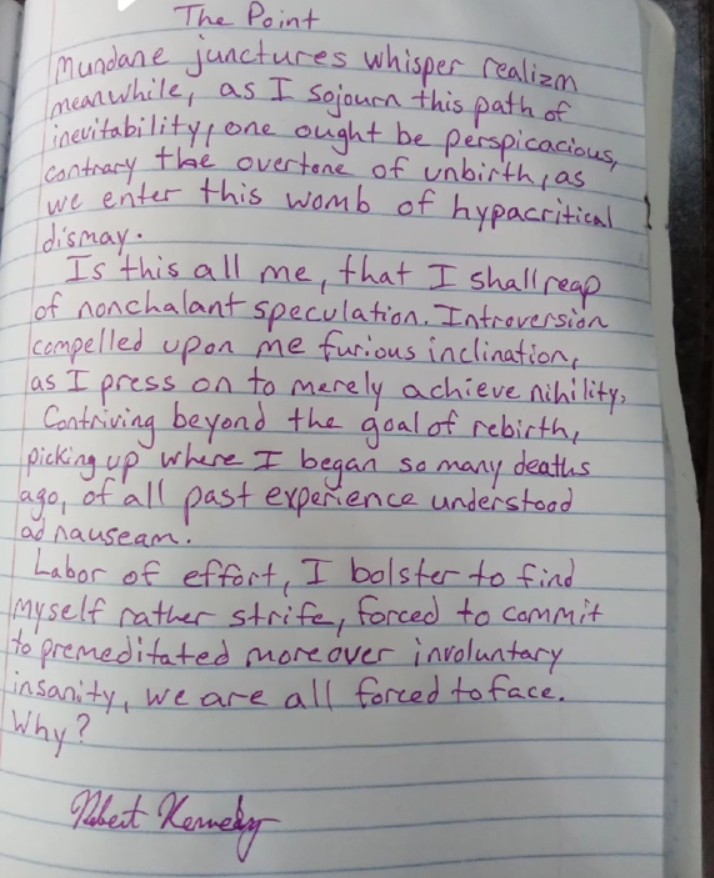 The Point
Mundane junctures whisper realizm
meanwhile, as I sojourn this path of
inevitability, one ought be perspicacious,
contrary the overtone of unbirth, as
we enter this womb of hypacritical
dismay.
Is this all me, that I shall reap
of nonchalant speculation. Introversion
compelled upon me furious inclination,
as I press on to merely achieve nihility,
Contriving beyond the goal of rebirth,
picking up where I began so many deaths
ago, of all past experience understood
ad nauseam.
Labor of effort, I bolster to find
myself rather strife, forced to commit
to premeditated moreover involuntary
insanity, we are all forced to face.
Why?
Robert Kennedy